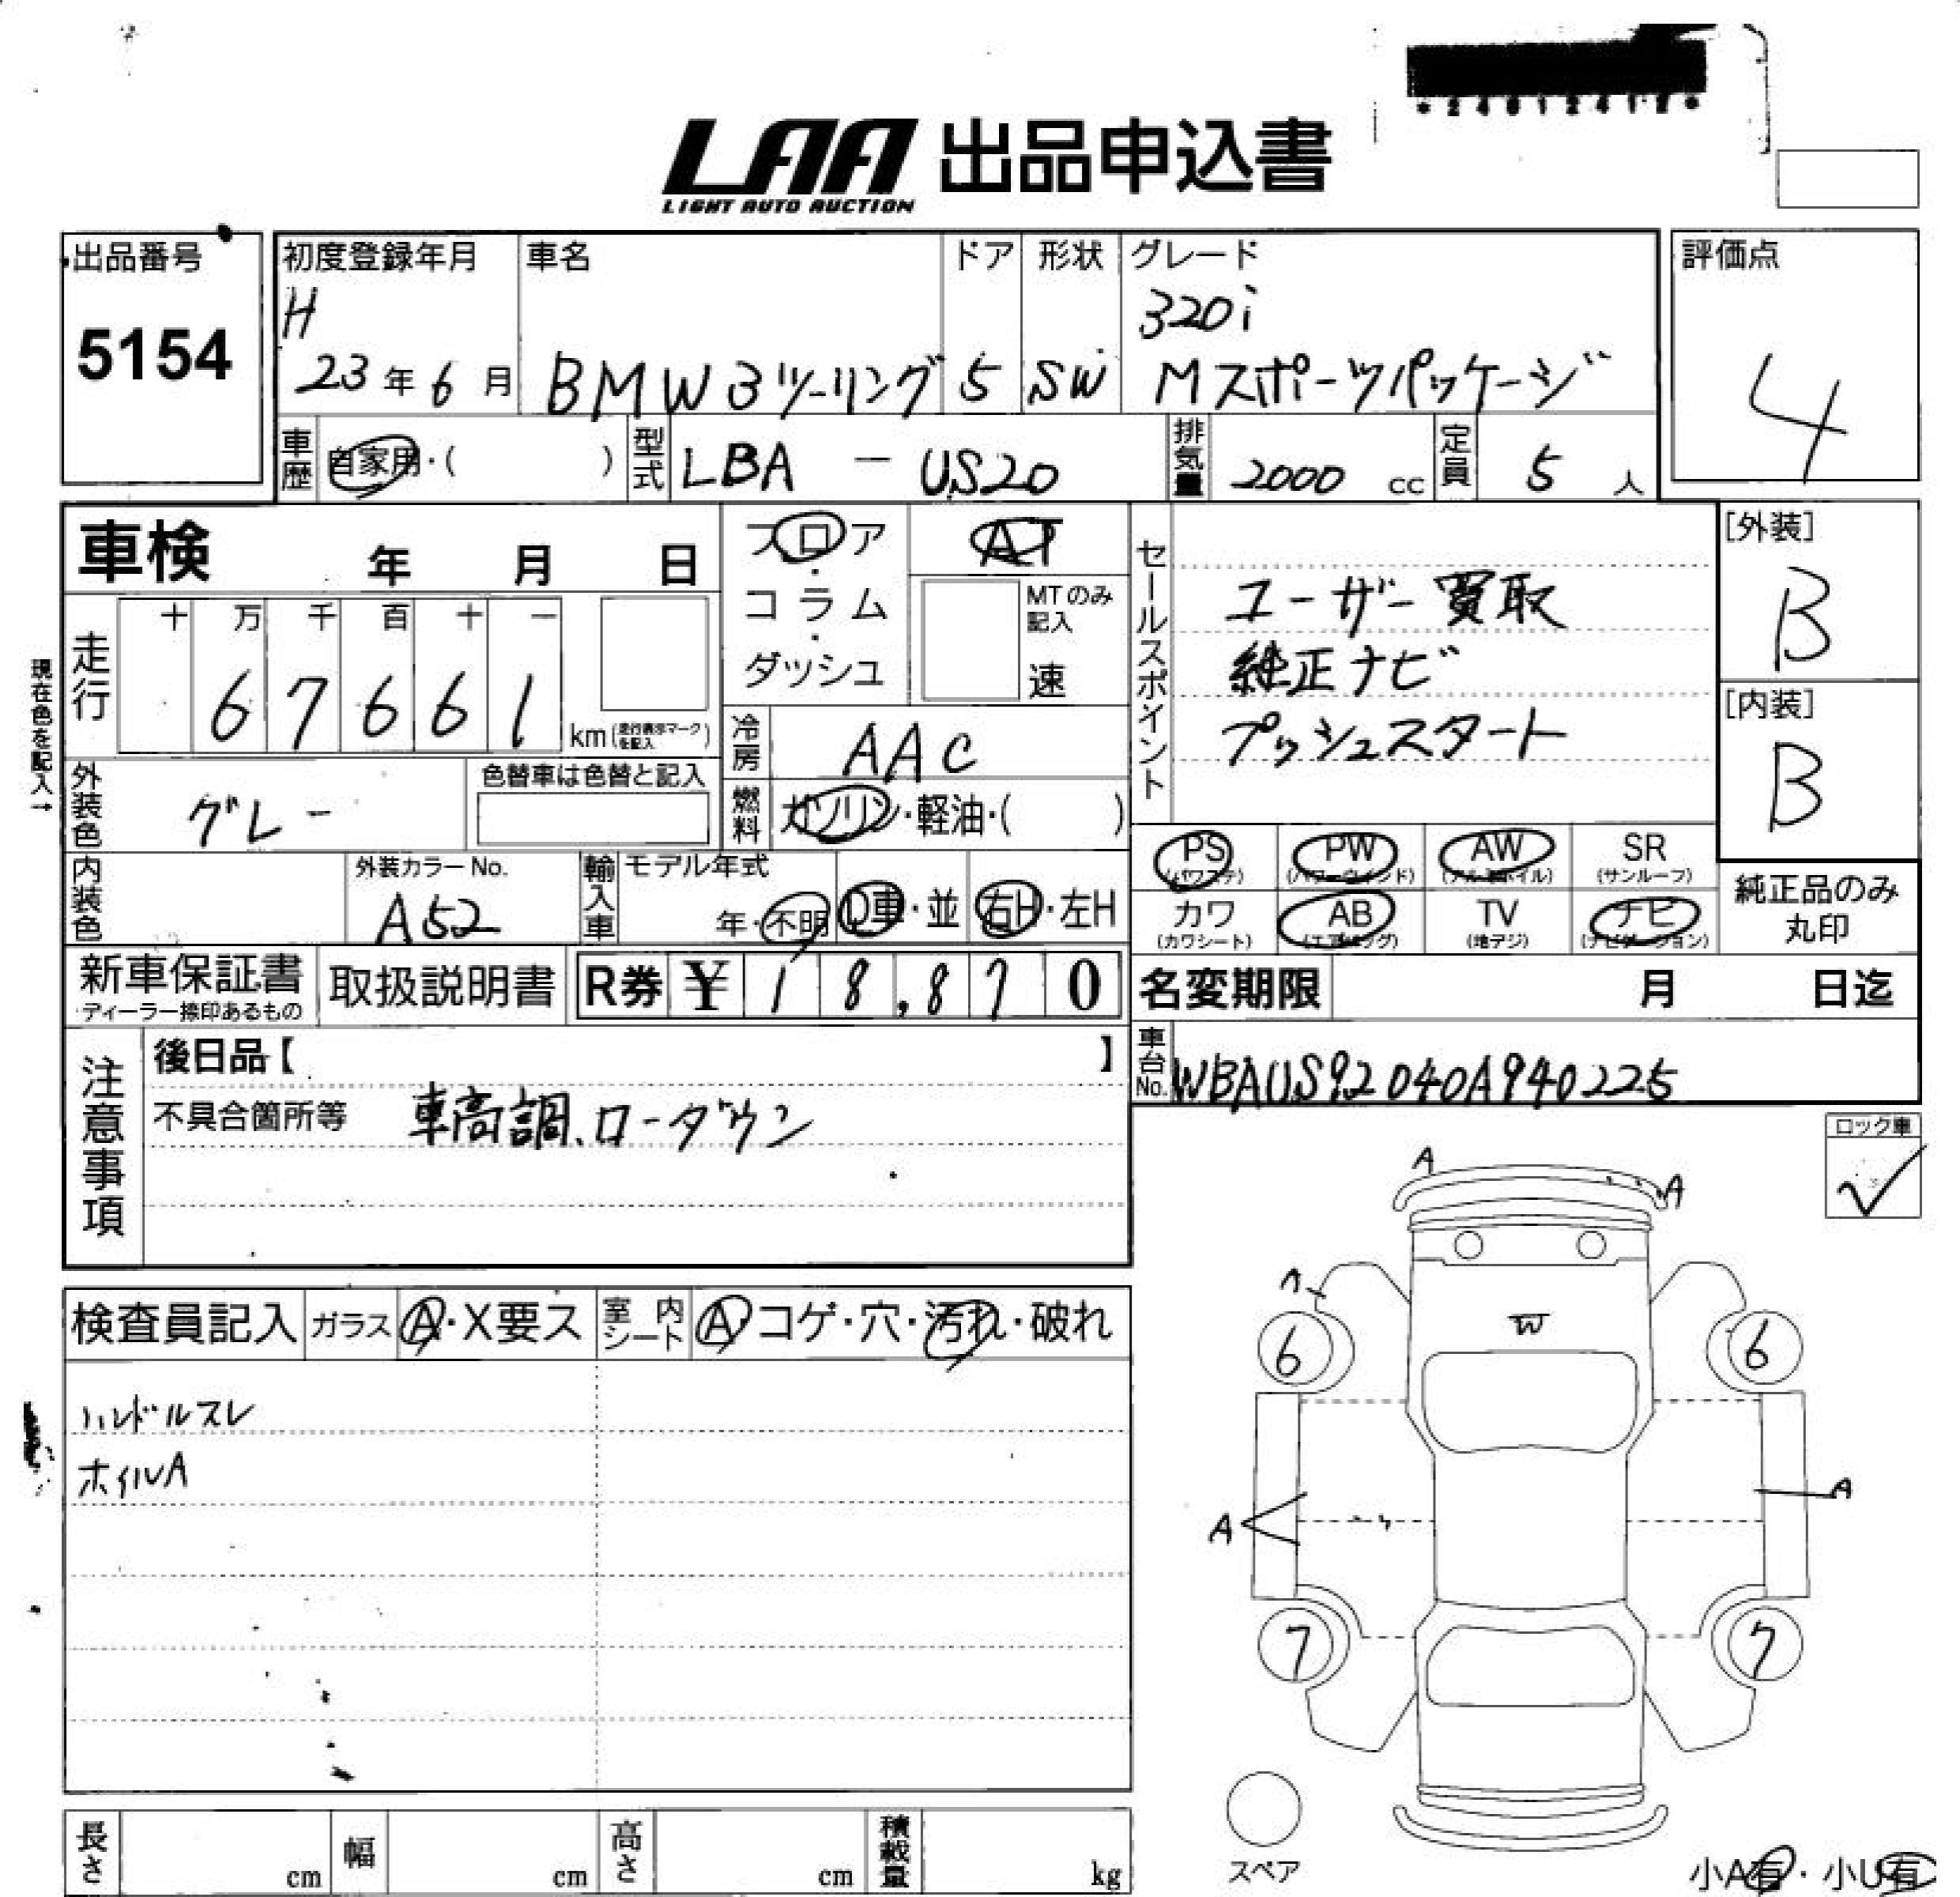 *24012412*
LAA 出品申込書
LIGHT AUTO AUCTION
出品番号
5154
初度登録年月 車名 ドア 形状 グレード
H 23年6月 BMW3ツーリング 5 SW 320i
Mスポーツパッケージ
評価点
4
車歴 自家用・( ) 型式 LBA - US20 排気量 2000 cc 定員 5 人
車検 年 月 日
フロア・コラム・ダッシュ
AT
MTのみ記入
速
セールスポイント
ユーザー買取
純正ナビ
プッシュスタート
[外装]
B
[内装]
B
現在色を記入→
走行 十 万 千 百 十 一
6 7 6 6 1
km(走行表示マークを記入)
冷房 AAC
外装色 グレー 色替車は色替と記入
燃料 ガソリン・軽油・( )
PS PW AW SR
(パワステ) (パワーウィンド) (アルミホイル) (サンルーフ)
カワ AB TV ナビ
(カワシート) (エアバッグ) (地デジ) (ナビゲーション)
純正品のみ
丸印
内装色 外装カラーNo. A52 輸入車 モデル年式 年・不明 D車・並 右H・左H
新車保証書
ディーラー捺印あるもの
取扱説明書 R券 ¥ 18,870
名変期限 月 日迄
車台No. WBAUS92040A940225
注意事項
後日品【 】
不具合箇所等 車高調、ローダウン
ロック車
✓
A
A
A
W
6
6
A
A
7
7
検査員記入 ガラス A・X要ス 室内シート A コゲ・穴・汚れ・破れ
ハンドルスレ
ホイルA
長さ cm 幅 cm 高さ cm 積載量 kg
スペア
小A有・小U有